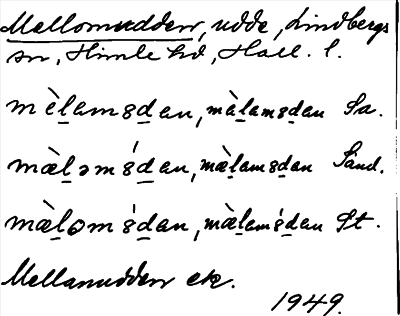 Mellomudden, udde, Lindbergs
sn, Himle hd, Hall. l.
mèlams̱dan, màlams̱dan Sa.
mæ̀ləmś̱dan, mæ̀lams̱dan Sand.
mæ̀ləmś̱dan, mæ̀lamś̱dan St.
Mellanudden ek.
1949.